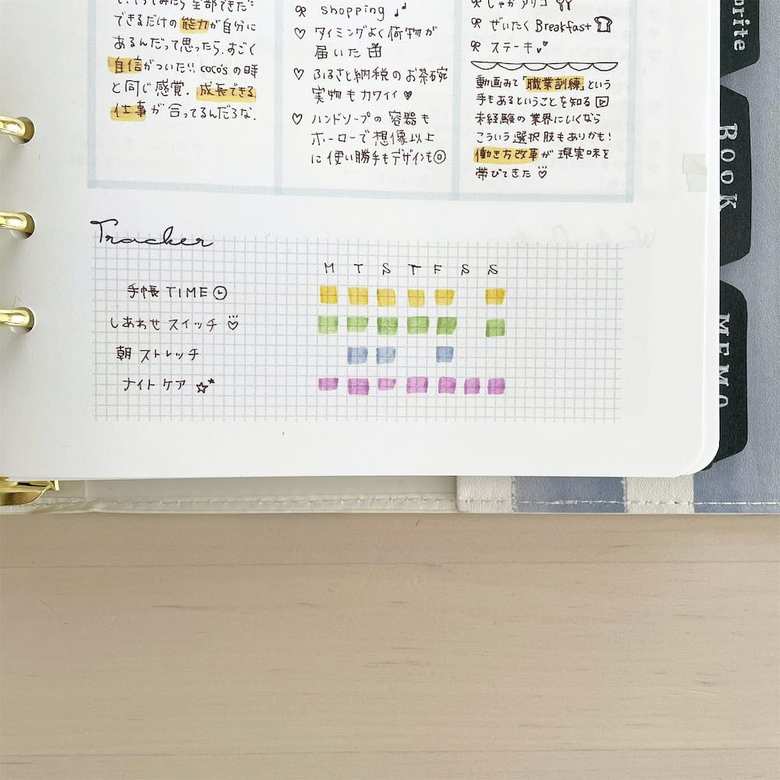 できるだけの能力が自分に
あるんだって思ったら、すごく
自信がついた!! coco'sの時
と同じ感覚. 成長できる
仕事が合ってるんだろな.
shopping
タイミングよく荷物が
届いた
ふるさと納税のお茶碗
実物もカワイイ
ハンドソープの容器も
ホーローで想像以上
に使い勝手もデザインも◎
じゃがアリゴ
ぜいたくBreakfast
ステーキ
動画みて「職業訓練」という
手もあるということを知る
未経験の業界にいくなら
こういう選択肢もありかも!
働き方改革が現実味を
帯びてきた
Tracker
M T S T F S S
手帳TIME
しあわせスイッチ
朝ストレッチ
ナイトケア
orite
BOOK
MEMO